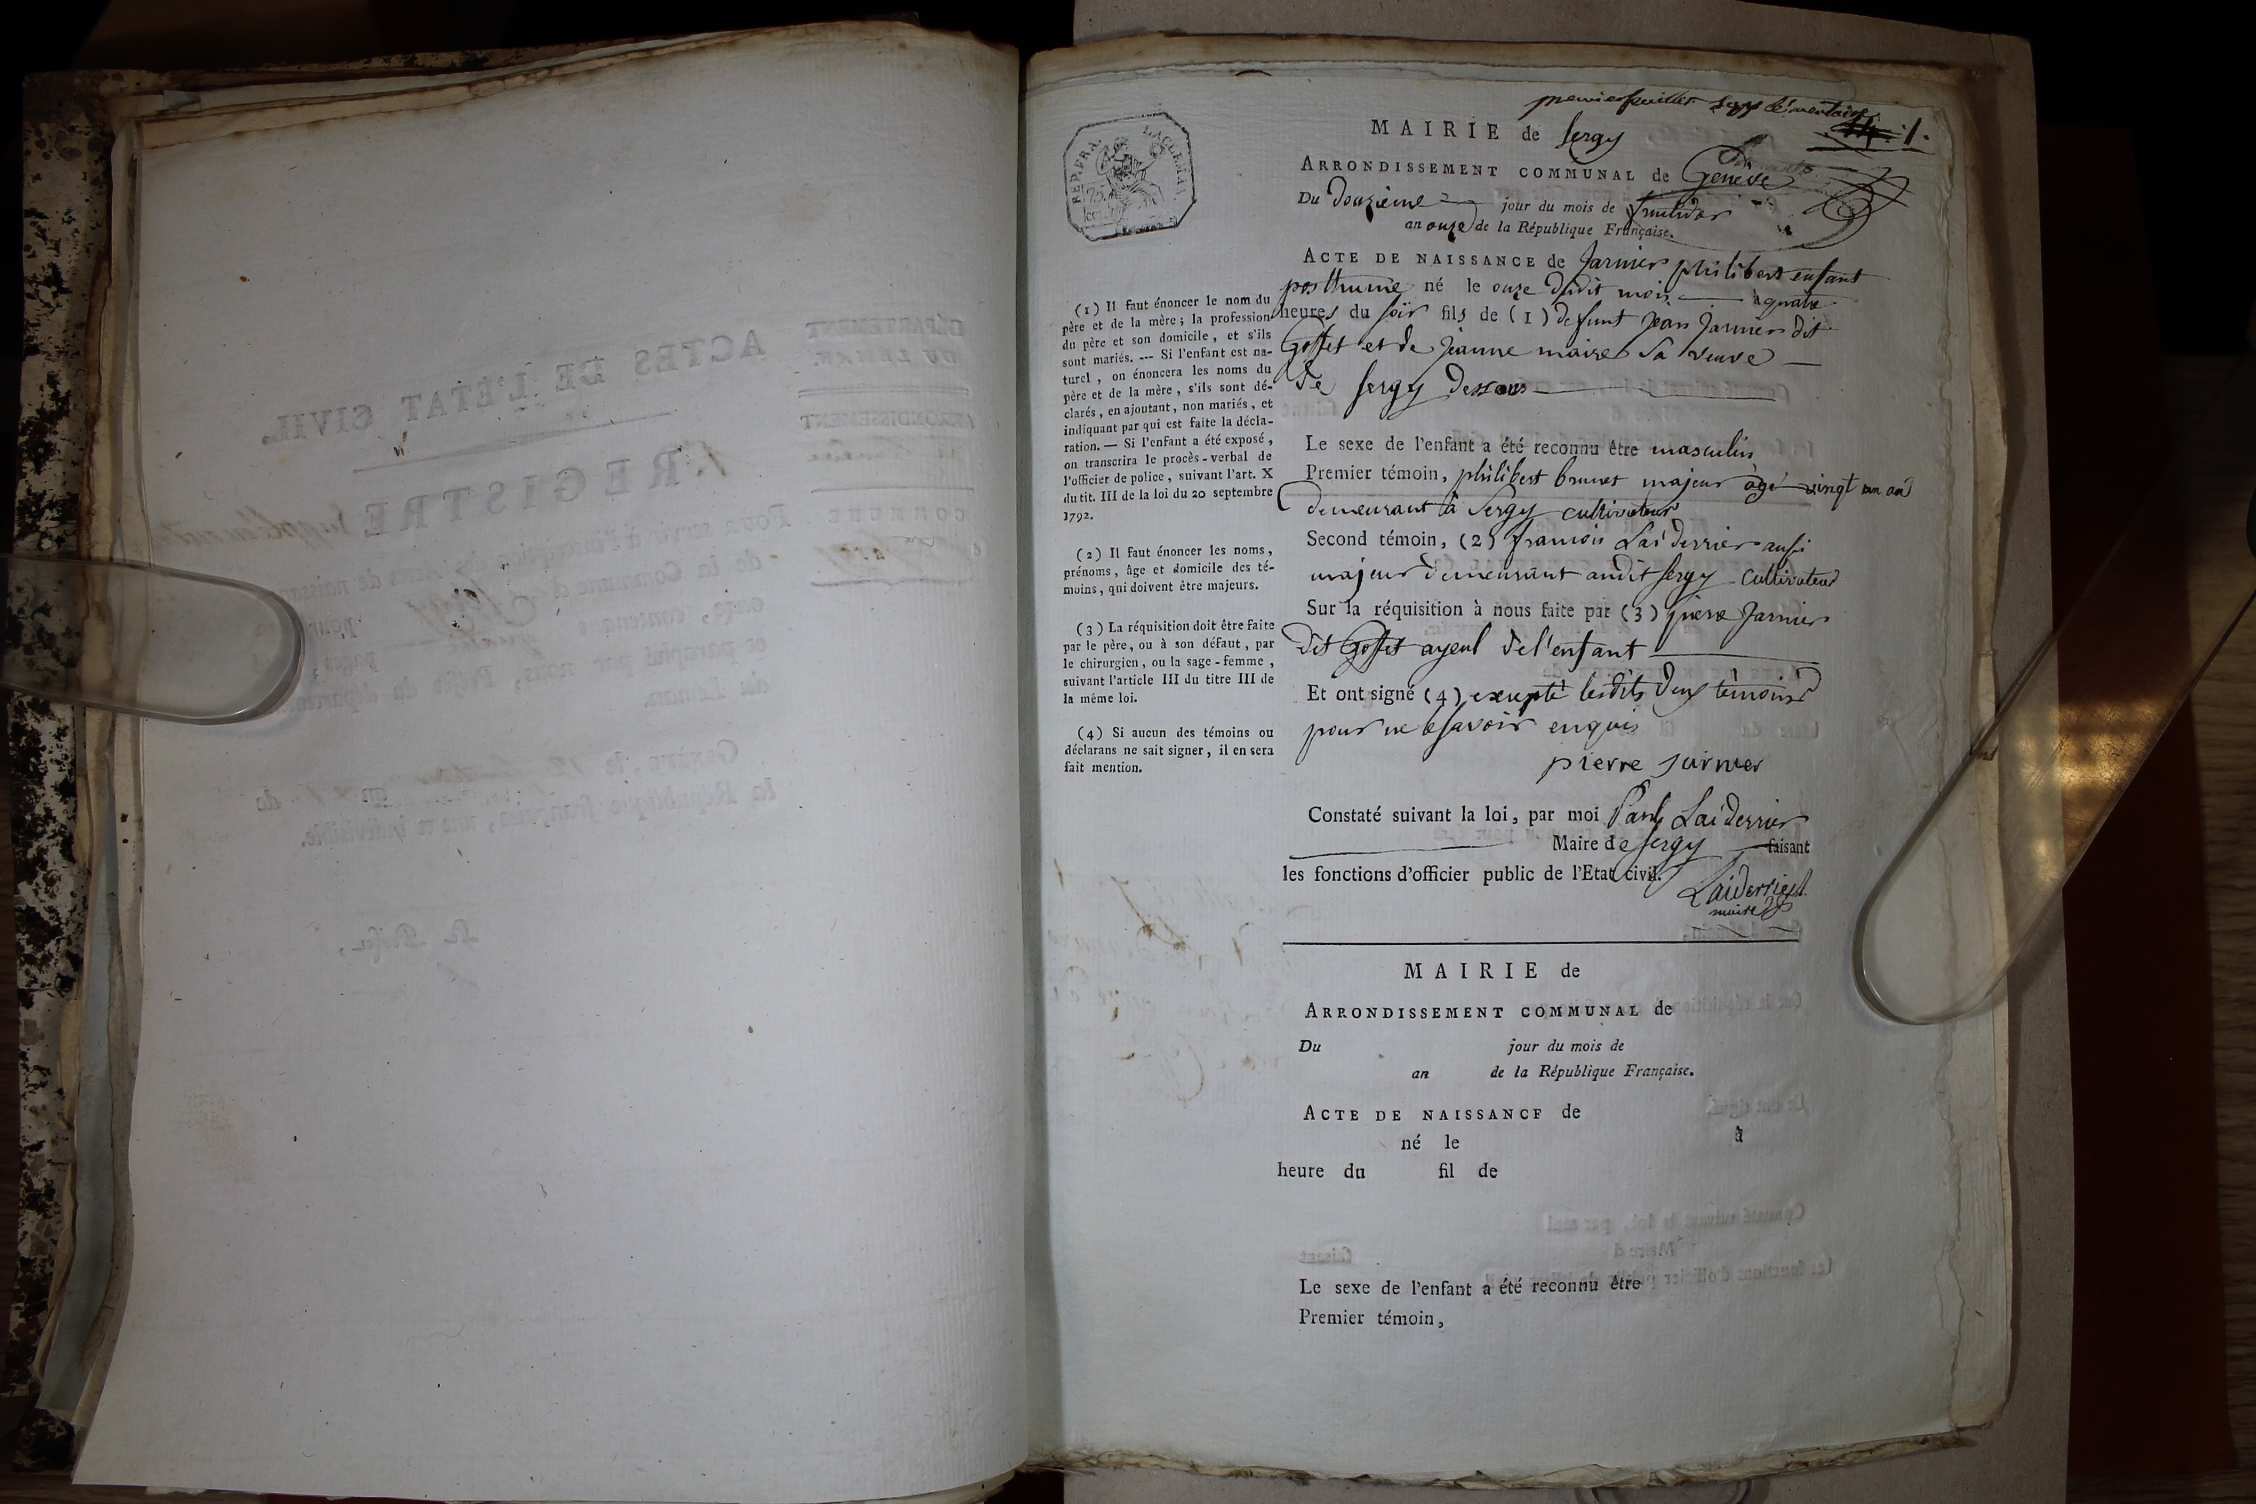 premier feuillet supplémentaire
1.
REP. FRA.
75.
MAIRIE de Sergy
ARRONDISSEMENT COMMUNAL de Genève
Du douzieme jour du mois de fructidor
an onze de la République Française.
ACTE DE NAISSANCE de Jarnier philibert enfant
posthume né le onze dudit mois à quatre
heures du soir fils de (1) defunt jean Jarnier dit
Goffet et de jeanne maire sa veuve
de sergy dessous
Le sexe de l'enfant a été reconnu être masculin
Premier témoin, philibert brunet majeur agé vingt un an
demeurant à Sergy cultivateur
Second témoin, (2) francois Laiderrier aussi
majeur demeurant audit sergy cultivateur
Sur la réquisition à nous faite par (3) pierre Jarnier
dit Goffet ayeul de l'enfant
Et ont signé (4) excepté lesdits deux témoins
pour ne savoir enquis
pierre jarnier
Constaté suivant la loi, par moi Paul Laiderrier
Maire de sergy faisant
les fonctions d'officier public de l'Etat civil.
Laiderrier
maire
(1) Il faut énoncer le nom du
père et de la mère; la profession
du père et son domicile, et s'ils
sont mariés. --- Si l'enfant est na-
turel, on énoncera les noms du
père et de la mère, s'ils sont dé-
clarés, en ajoutant, non mariés, et
indiquant par qui est faite la décla-
ration. — Si l'enfant a été exposé,
on transcrira le procès-verbal de
l'officier de police, suivant l'art. X
du tit. III de la loi du 20 septembre
1792.
(2) Il faut énoncer les noms,
prénoms, âge et domicile des té-
moins, qui doivent être majeurs.
(3) La réquisition doit être faite
par le père, ou à son défaut, par
le chirurgien, ou la sage-femme,
suivant l'article III du titre III de
la même loi.
(4) Si aucun des témoins ou
déclarans ne sait signer, il en sera
fait mention.
MAIRIE de
ARRONDISSEMENT COMMUNAL de
Du jour du mois de
an de la République Française.
ACTE DE NAISSANCE de
né le à
heure du fil de
Le sexe de l'enfant a été reconnu être
Premier témoin,